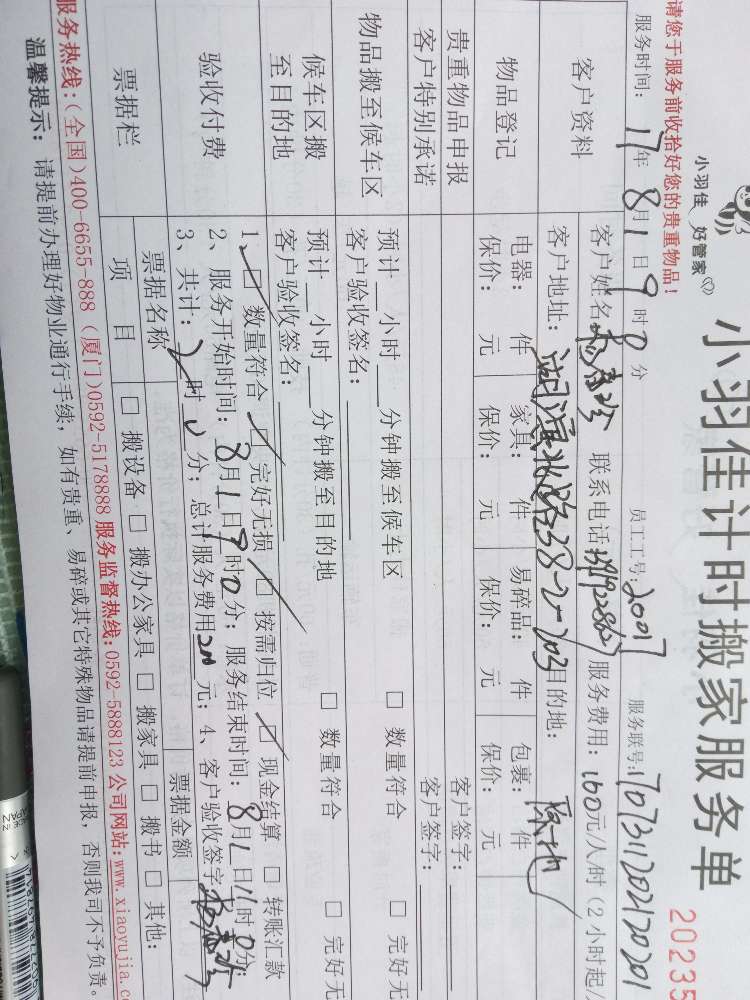 小羽佳 好管家
小羽佳计时搬家服务单
20235
请您于服务前收拾好您的贵重物品！
员工工号：2007
服务联号：1707311202120201
服务时间：17年8月1日9时0分
客户资料
客户姓名 联系电话： 服务费用：160元/人/时（2小时起/
客户地址：湖滨北路38-2-703 目的地：原地
物品登记
电器： 件 家具： 件 易碎品： 件 包裹： 件
保价： 元 保价： 元 保价： 元 保价： 元
贵重物品申报
客户签字：
客户特别承诺
客户签字：
物品搬至候车区
预计 小时 分钟搬至候车区 □ 数量符合 □ 完好无
客户验收签名：
候车区搬至目的地
预计 小时 分钟搬至目的地 □ 数量符合 □ 完好无
客户验收签名：
验收付费
1、□ 数量符合 □ 完好无损 □ 按需归位 □ 现金结算 □ 转账汇款
2、服务开始时间：8月1日9时0分；服务结束时间：8月1日11时0分；
3、共计：2时0分；总计服务费用 元；4、客户验收签字：
票据栏
票据名称 票据金额
项目 □ 搬设备 □ 搬办公家具 □ 搬家具 □ 搬书 □ 其他：
服务热线：（全国）400-6655-888（厦门）0592-5178888 服务监督热线：0592-5888123 公司网站：www.xiaoyujia.c
温馨提示： 请提前办理好物业通行手续，如有贵重、易碎或其它特殊物品请提前申报，否则我司不予负责。